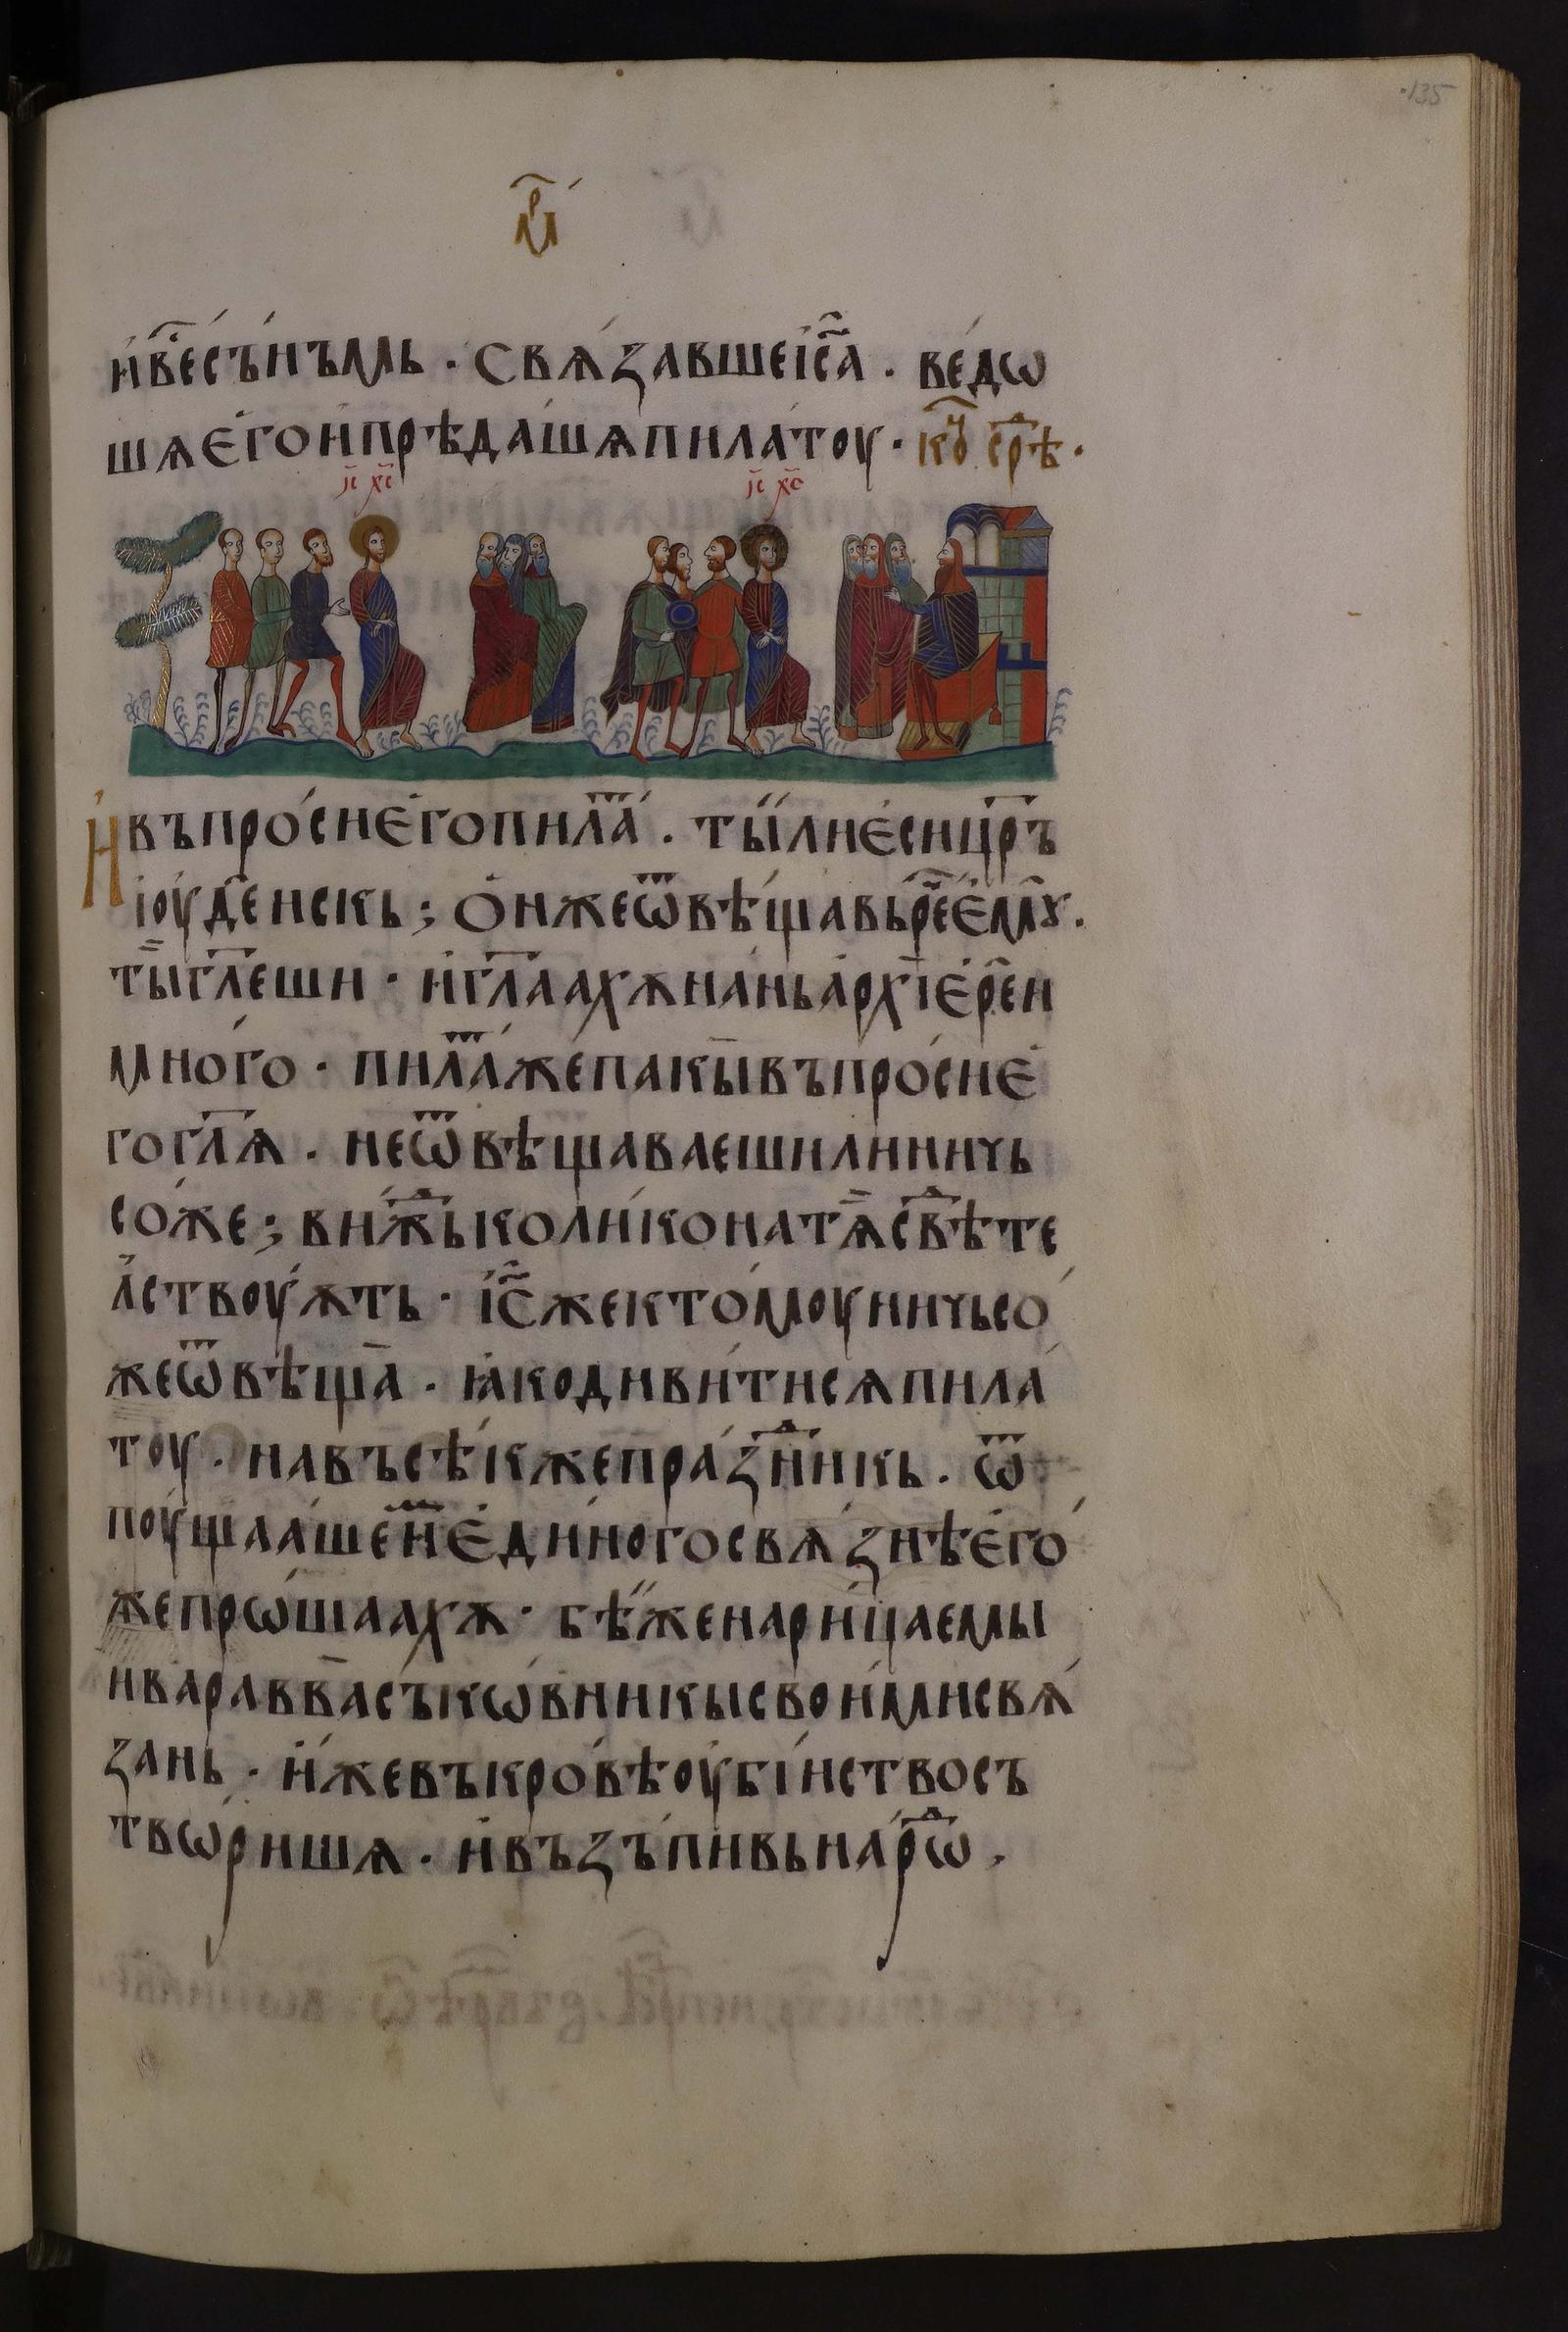 135
мр҃
и҆ ве́съ́ньмь · Свѧ́завшеіс҃а · ве́дѡ
шѧегои҆прѣда́шѧпила́тоу · ко҃ц ср҃ѣ ·
і҃с х҃с і҃с х҃с
Ивъпро́сиегопила҃ · ты́лиесицр҃ъ
іоуде҃искь ; О҆нжеѿвѣ́щавьре҃е҆моу ·
ты҃гл҃еши · и҆гл҃аахѫна́ньа҆рхіе҆ре҃и
мно́го · пила҃жепакы҆въпро́сие
гогл҃ѧ · неѿвѣщаваешилиничь
со́же ; ви́ждьколи́конатѧ҃св҃ѣте
л҃ствоу́ѫть · іс҃жектомоуничьсо
жеѿвѣща҃ · ꙗ҆кодиви́тисѧпила́
тоу · навъсѣ́кжепра́зн҃икь · ѿ
поущаа́шен҃едииногосвѧ́знѣего́
жепрѡ́шаахѫ · бѣ̋женари́цаемы
иварав҃васъкѡ́вникысвои́мисвѧ́
зань · и҆́жевъкро́вѣоубі́иствосъ
твѡ́ришѧ · и҆въ́зъпивьнарѡ҃ ·